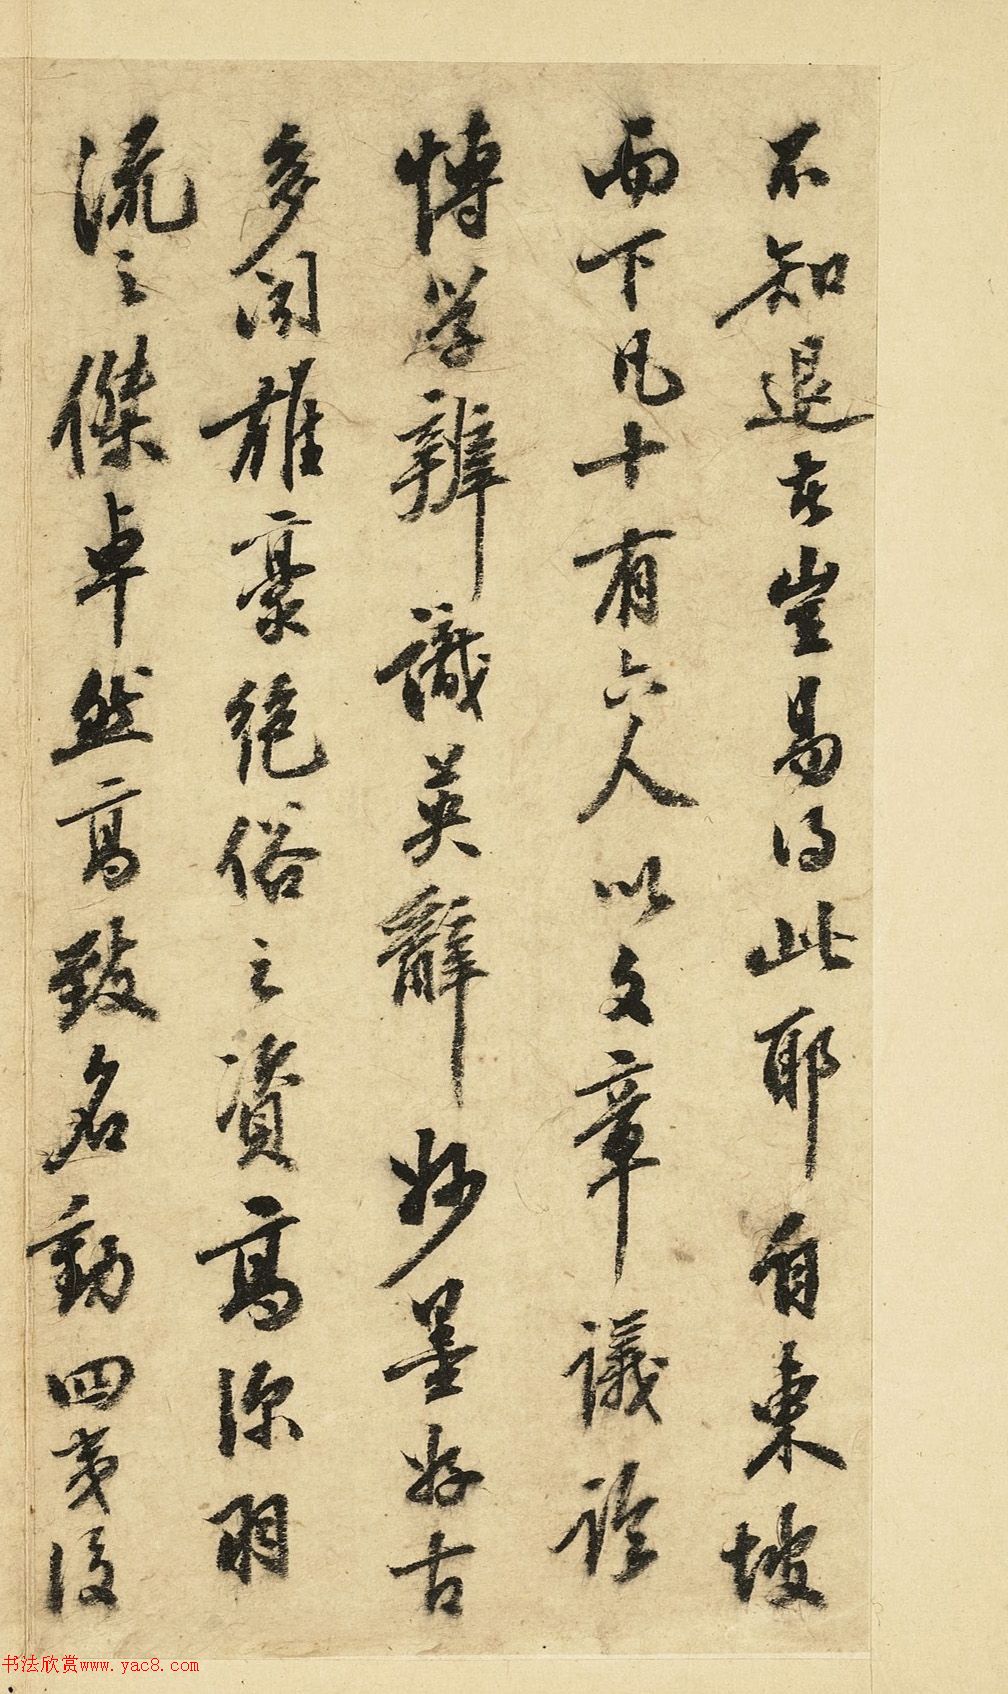 不知退者豈易得此耶自東坡
而下凡十有六人以文章議論
博學辨識英辭妙墨好古
多聞雄豪絕俗之資高深羽
流之傑卓然高致名動四夷後
书法欣赏www.yac8.com